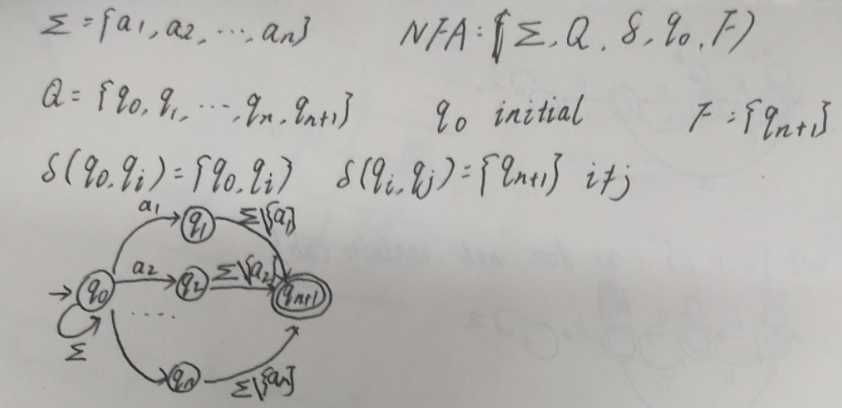 Σ = {a₁, a₂, ..., aₙ} NFA: {Σ, Q, δ, q₀, F)
Q = {q₀, q₁, ..., qₙ, qₙ₊₁} q₀ initial F = {qₙ₊₁}
δ(q₀, qᵢ) = {q₀, qᵢ) δ(qᵢ, qⱼ) = {qₙ₊₁} i≠j
a₁ q₁ Σ\{a₁}
a₂ q₂ Σ\{a₂}
q₀ qₙ₊₁
.....
Σ
qₙ Σ\{aₙ}